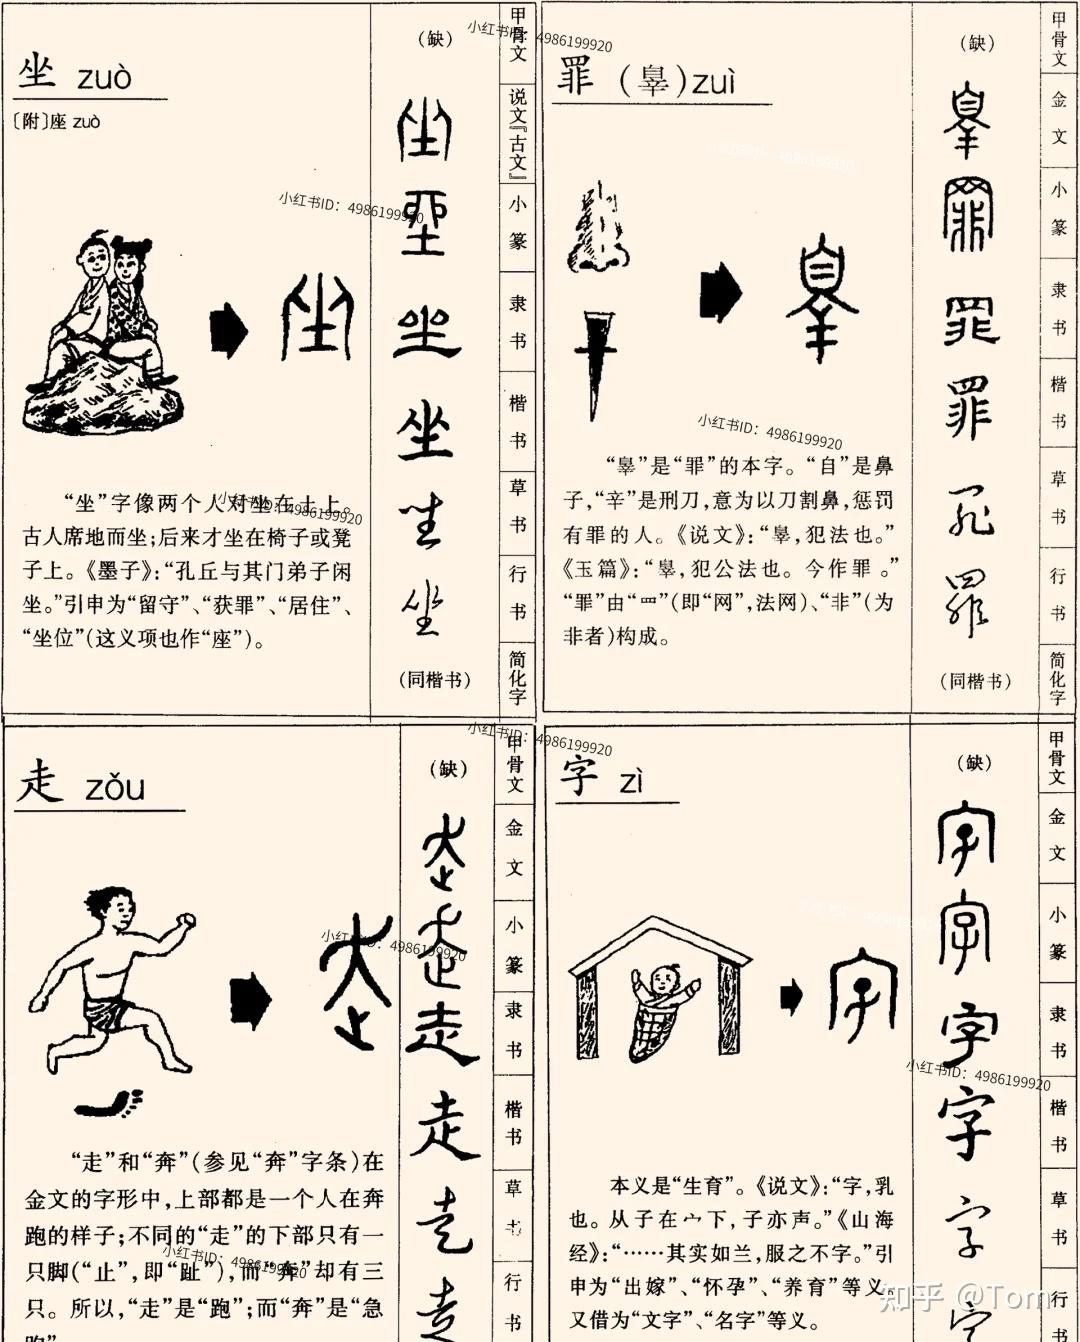 坐 zuò
〔附〕座 zuò
“坐”字像两个人对坐在土上。
古人席地而坐；后来才坐在椅子或凳
子上。《墨子》：“孔丘与其门弟子闲
坐。”引申为“留守”、“获罪”、“居住”、
“坐位”（这义项也作“座”）。
（缺）
坐
坐
坐
坐
坐
坐
（同楷书）
甲骨文
说文『古文』
小篆
隶书
楷书
草书
行书
简化字
罪（辠）zuì
“辠”是“罪”的本字。“自”是鼻
子，“辛”是刑刀，意为以刀割鼻，惩罚
有罪的人。《说文》：“辠，犯法也。”
《玉篇》：“辠，犯公法也。今作罪。”
“罪”由“罒”（即“网”，法网）、“非”（为
非者）构成。
（缺）
辠
罪
罪
罪
罪
罪
（同楷书）
甲骨文
金文
小篆
隶书
楷书
草书
行书
简化字
走 zǒu
“走”和“奔”（参见“奔”字条）在
金文的字形中，上部都是一个人在奔
跑的样子；不同的“走”的下部只有一
只脚（“止”，即“趾”），而“奔”却有三
只。所以，“走”是“跑”；而“奔”是“急
（缺）
走
走
走
走
走
走
甲骨文
金文
小篆
隶书
楷书
草书
行书
字 zì
本义是“生育”。《说文》：“字，乳
也。从子在宀下，子亦声。”《山海
经》：“……其实如兰，服之不字。”引
申为“出嫁”、“怀孕”、“养育”等义。
又借为“文字”、“名字”等义。
（缺）
字
字
字
字
字
字
甲骨文
金文
小篆
隶书
楷书
草书
行书
小红书ID：4986199920
小红书ID：4986199920
小红书ID：4986199920
小红书ID：4986199920
小红书ID：4986199920
小红书ID：4986199920
小红书ID：4986199920
小红书ID：4986199920
知乎 @Tom